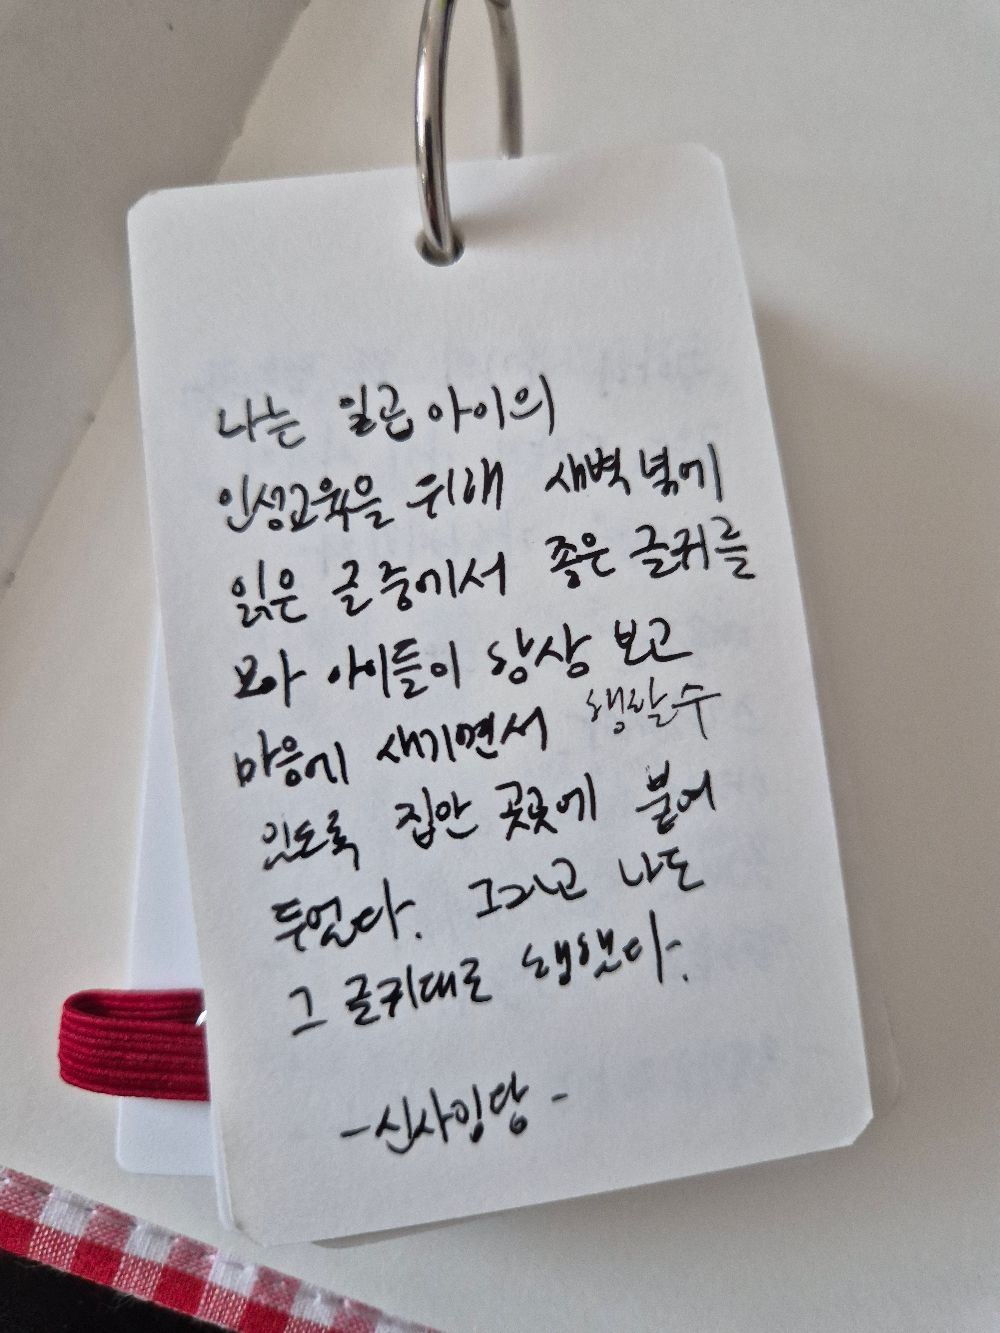 나는 일곱 아이의
인성교육을 위해 새벽녘에
읽은 글 중에서 좋은 글귀를
모아 아이들이 항상 보고
마음에 새기면서 생활 수
있도록 집안 곳곳에 붙여
두었다. 그리고 나도
그 글귀대로 행했다.
-신사임당-